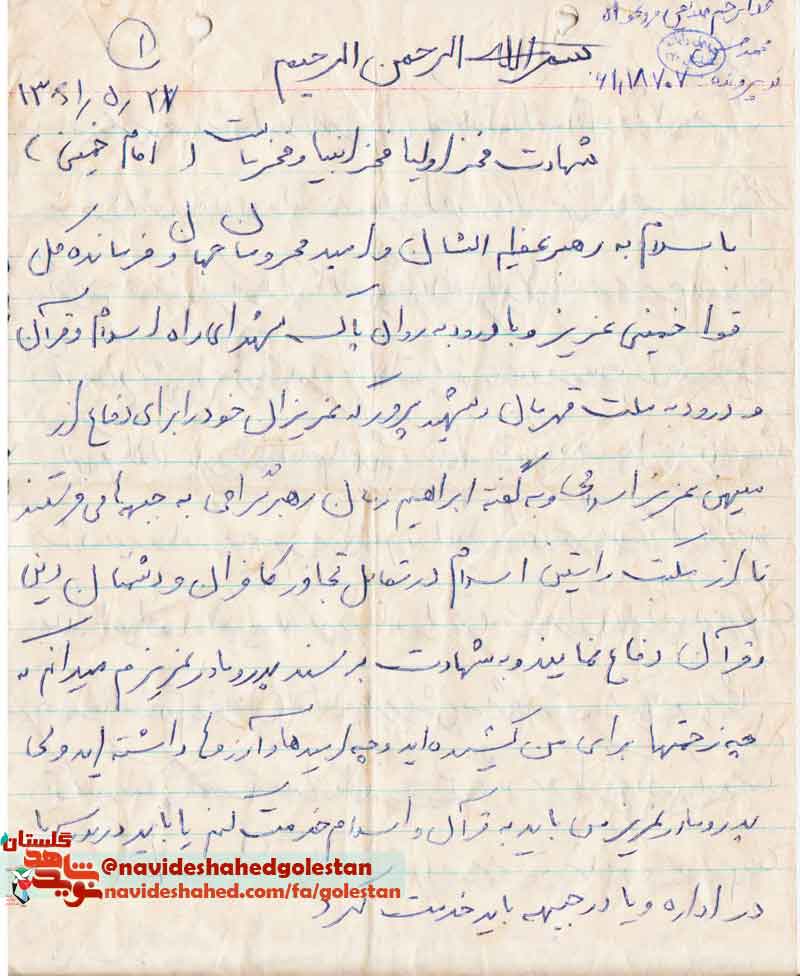 ۱
بسم الله الرحمن الرحیم
۱۳۶۱/۵/۲۷
۶۱/۱۸۷۰۷
شهادت فخر اولیا فخر انبیا و فخر ماست ( امام خمینی )
با سلام به رهبر عظیم الشان و امید محرومان جهان و فرمانده کل
قوا خمینی عزیز و با درود به روان پاک شهدای راه اسلام و قرآن
و درود به ملت قهرمان و شهید پرور که عزیزان خود را برای دفاع از
میهن عزیز اسلامی و به گفته ابراهیم زمان رهبر گرامی به جبهه ها می فرستند
تا از مکتب راستین اسلام در مقابل تجاوز کافران و دشمنان دین
و قرآن دفاع نمایند و به شهادت برسند پدر و مادر عزیزم میدانم که
چه زحمتها برای من کشیده اید و چه امیدها و آرزوها داشته اید ولی
پدر و مادر عزیز من باید به قرآن و اسلام خدمت کنم یا باید در
در اداره و یا در جبهه باید خدمت کرد
گلستان
نوید شاهد
@navideshahedgolestan
navideshahed.com/fa/golestan